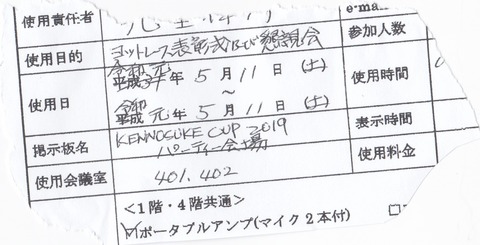 使用責任者
e-ma
使用目的 ヨットレース表彰式及び懇親会 参加人数
令和元
使用日 平成31年 5月11日(土) 使用時間
~
令和
平成元年 5月11日(土)
表示時間
掲示板名 KENNOSUKE CUP 2019
パーティー会場
使用料金
使用会議室 401.402
<1階・4階共通>
☑ポータブルアンプ(マイク2本付) □